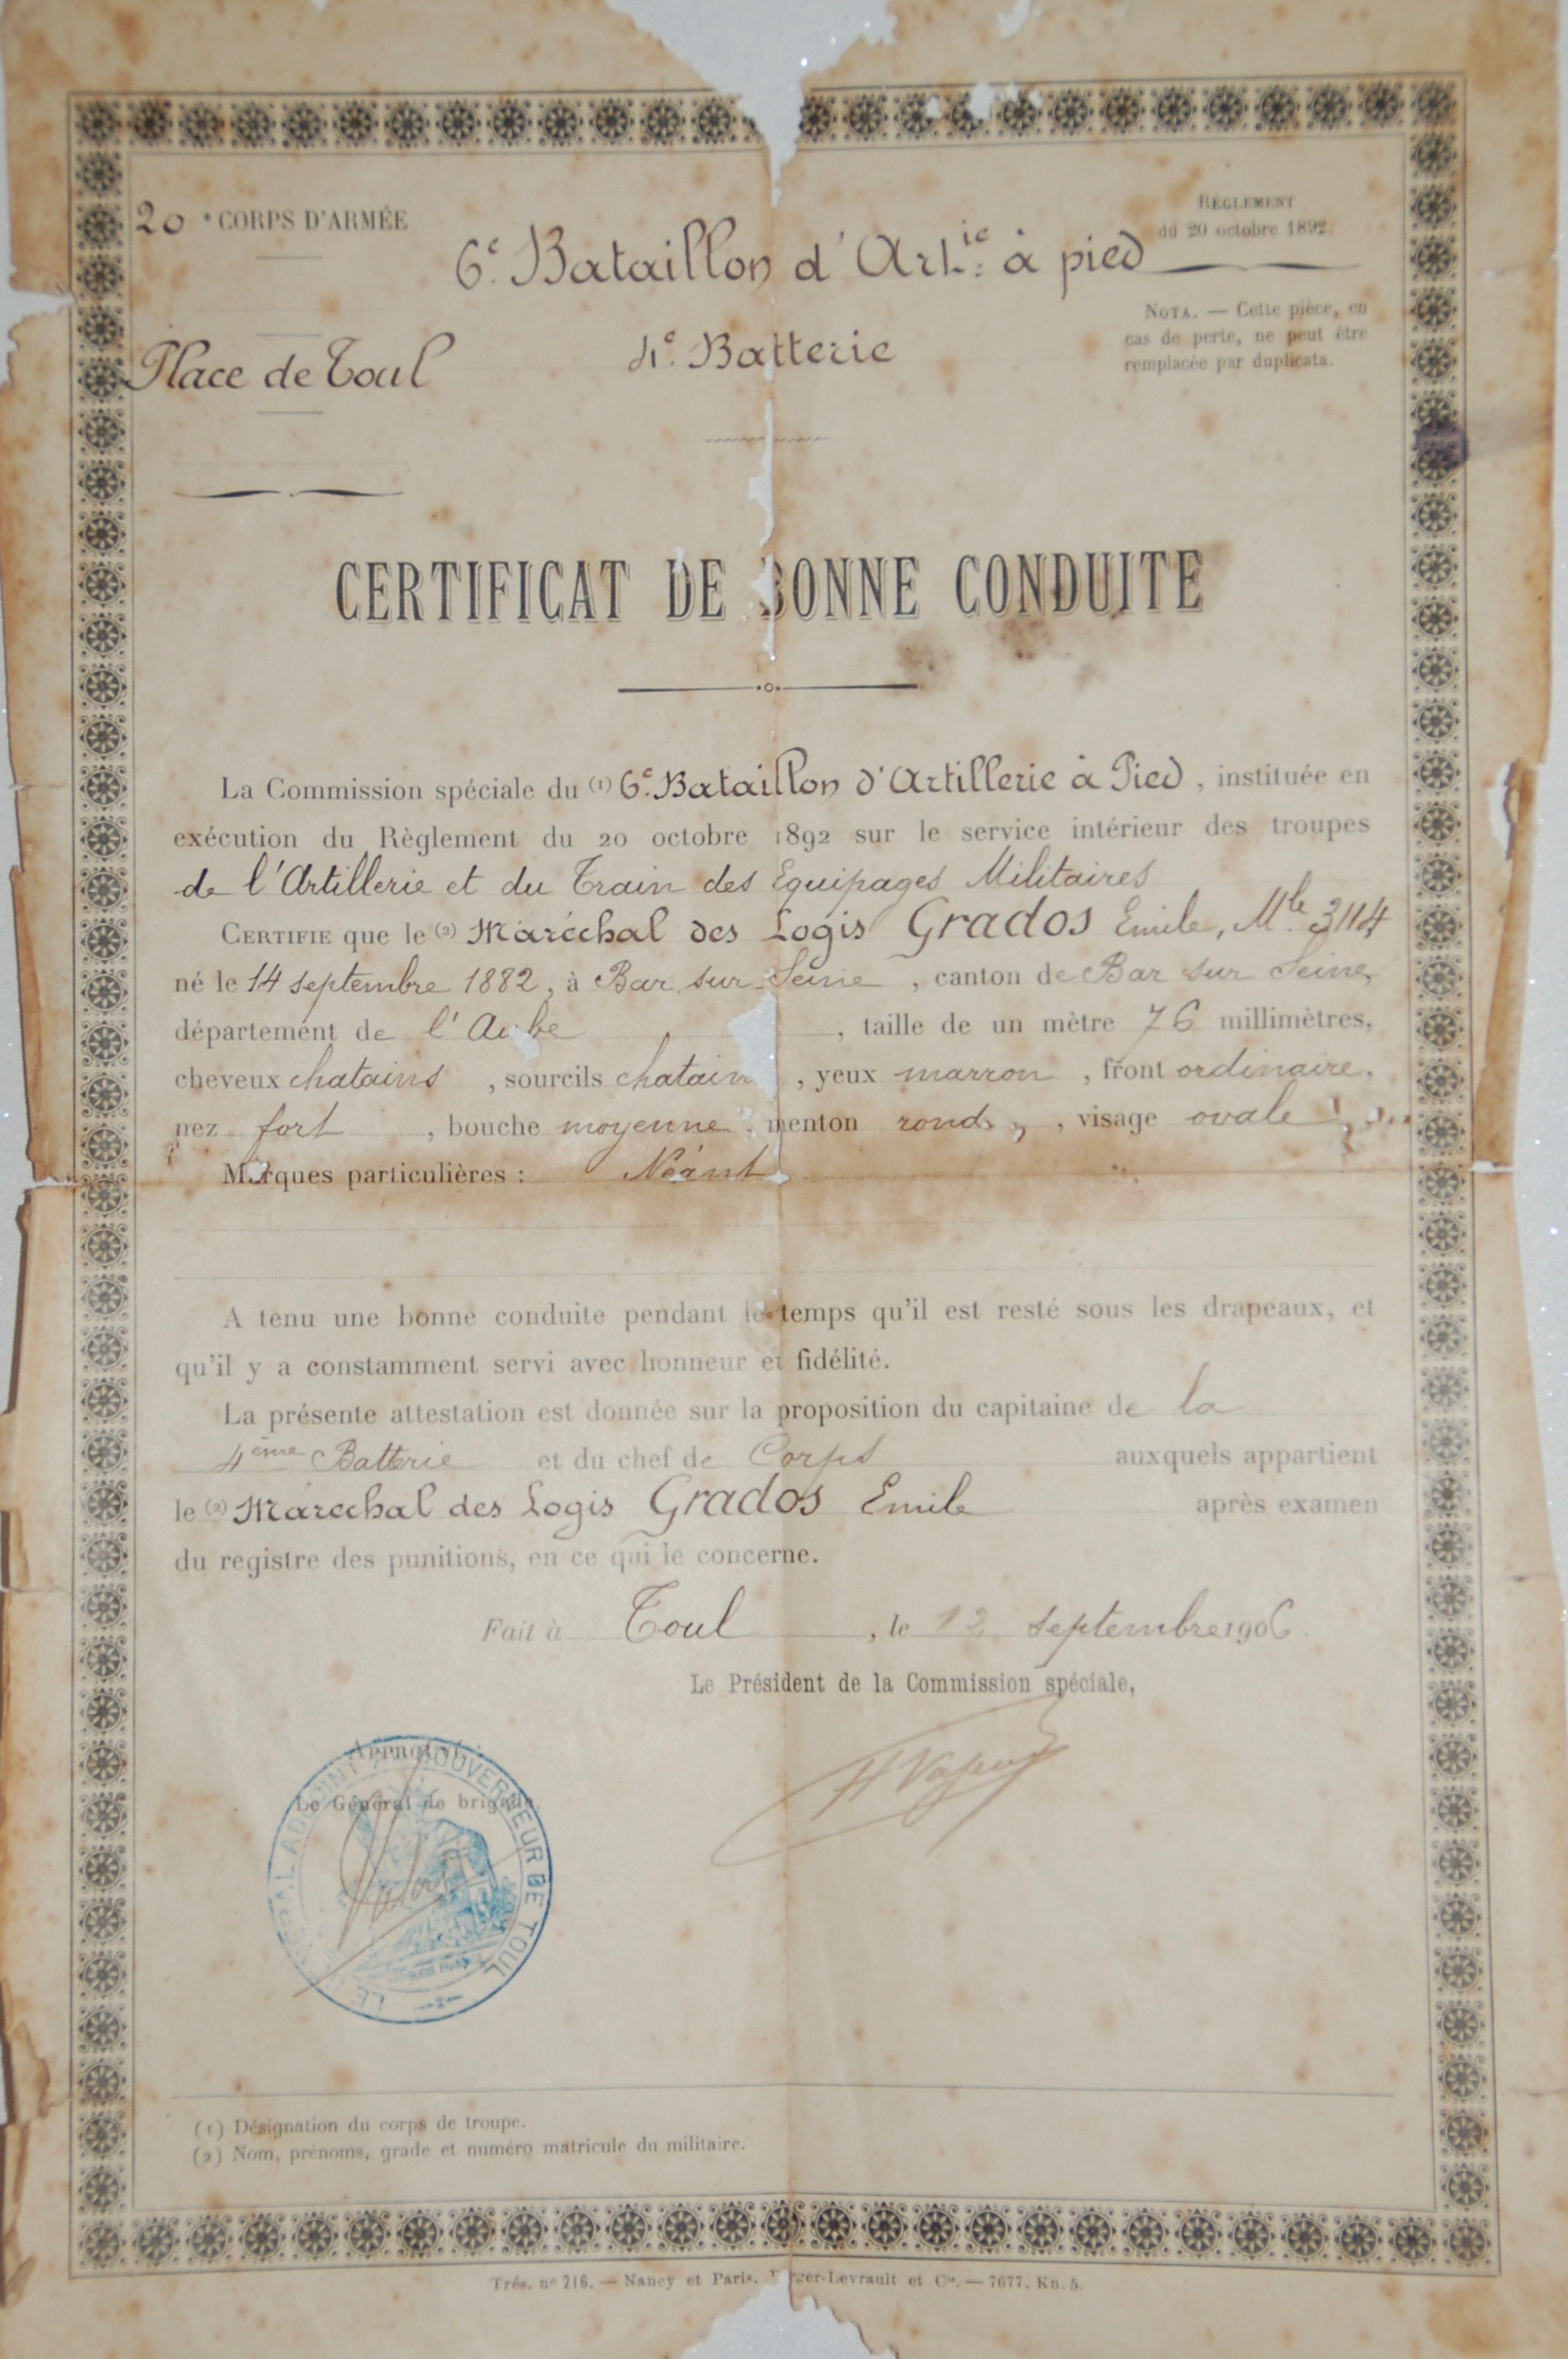 20e CORPS D'ARMÉE
RÈGLEMENT
du 20 octobre 1892.
6e. Bataillon d'Artie. à pied
NOTA. — Cette pièce, en
cas de perte, ne peut être
remplacée par duplicata.
Place de Toul
4e. Batterie
CERTIFICAT DE BONNE CONDUITE
La Commission spéciale du (1) 6e. Bataillon d'Artillerie à Pied, instituée en
exécution du Règlement du 20 octobre 1892 sur le service intérieur des troupes
de l'Artillerie et du Train des Equipages Militaires
CERTIFIE que le (2) Maréchal des Logis Grados Emile, Mle. 3114
né le 14 septembre 1882, à Bar sur Seine, canton de Bar sur Seine,
département de l'Aube, taille de un mètre 76 millimètres,
cheveux chatains, sourcils chatain, yeux marron, front ordinaire,
nez fort, bouche moyenne, menton rond, visage ovale
Marques particulières : Néant
A tenu une bonne conduite pendant le temps qu'il est resté sous les drapeaux, et
qu'il y a constamment servi avec honneur et fidélité.
La présente attestation est donnée sur la proposition du capitaine de la
4ème Batterie et du chef de Corps auxquels appartient
le (2) Maréchal des Logis Grados Emile après examen
du registre des punitions, en ce qui le concerne.
Fait à Toul, le 12 septembre 1906.
Le Président de la Commission spéciale,
APPROUVÉ :
Le Général de brigade
LE GÉNÉRAL ADJOINT AU GOUVERNEUR DE TOUL
(1) Désignation du corps de troupe.
(2) Nom, prénoms, grade et numéro matricule du militaire.
Trés. no 216. — Nancy et Paris. Berger-Levrault et Cie. — 7677. Kn. 5.